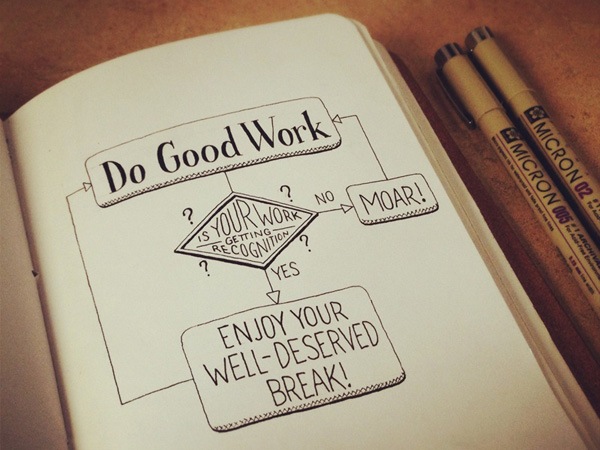 Do Good Work
?
?
IS YOUR WORK
GETTING
RECOGNITION
?
?
NO
MOAR!
YES
ENJOY YOUR
WELL-DESERVED
BREAK!
MICRON 005
MICRON 02